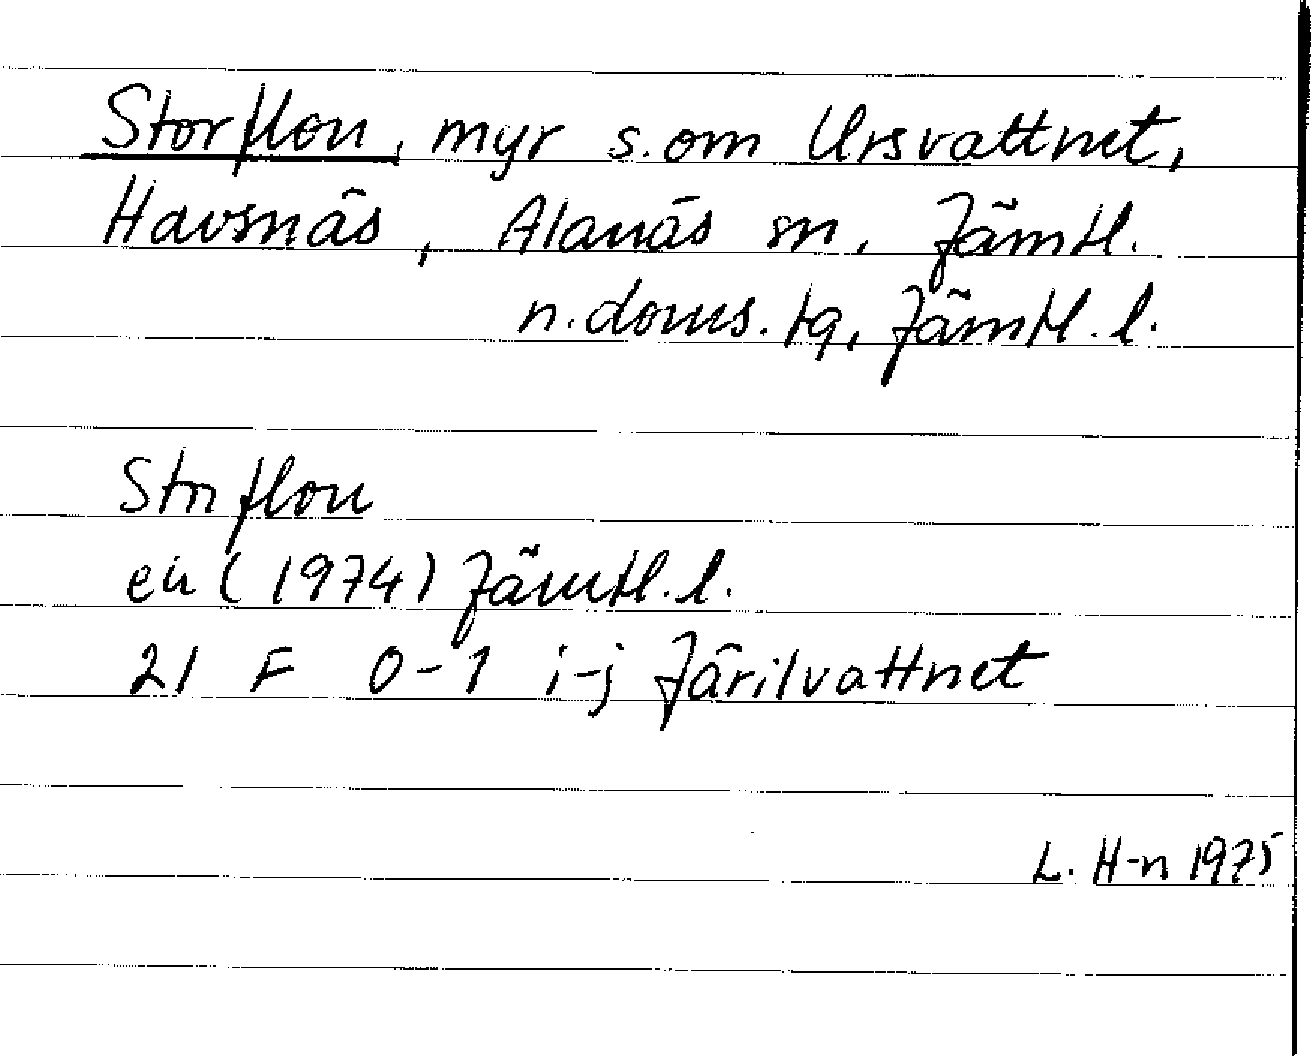 Storflon, myr s.om Ursvattnet,
Havsnäs, Alanäs sn, Jämtl.
n.doms.tg, Jämtl.l.
Storflon
ek (1974) Jämtl.l.
21 F 0-1 i-j Järilvattnet
L. H-n 1975